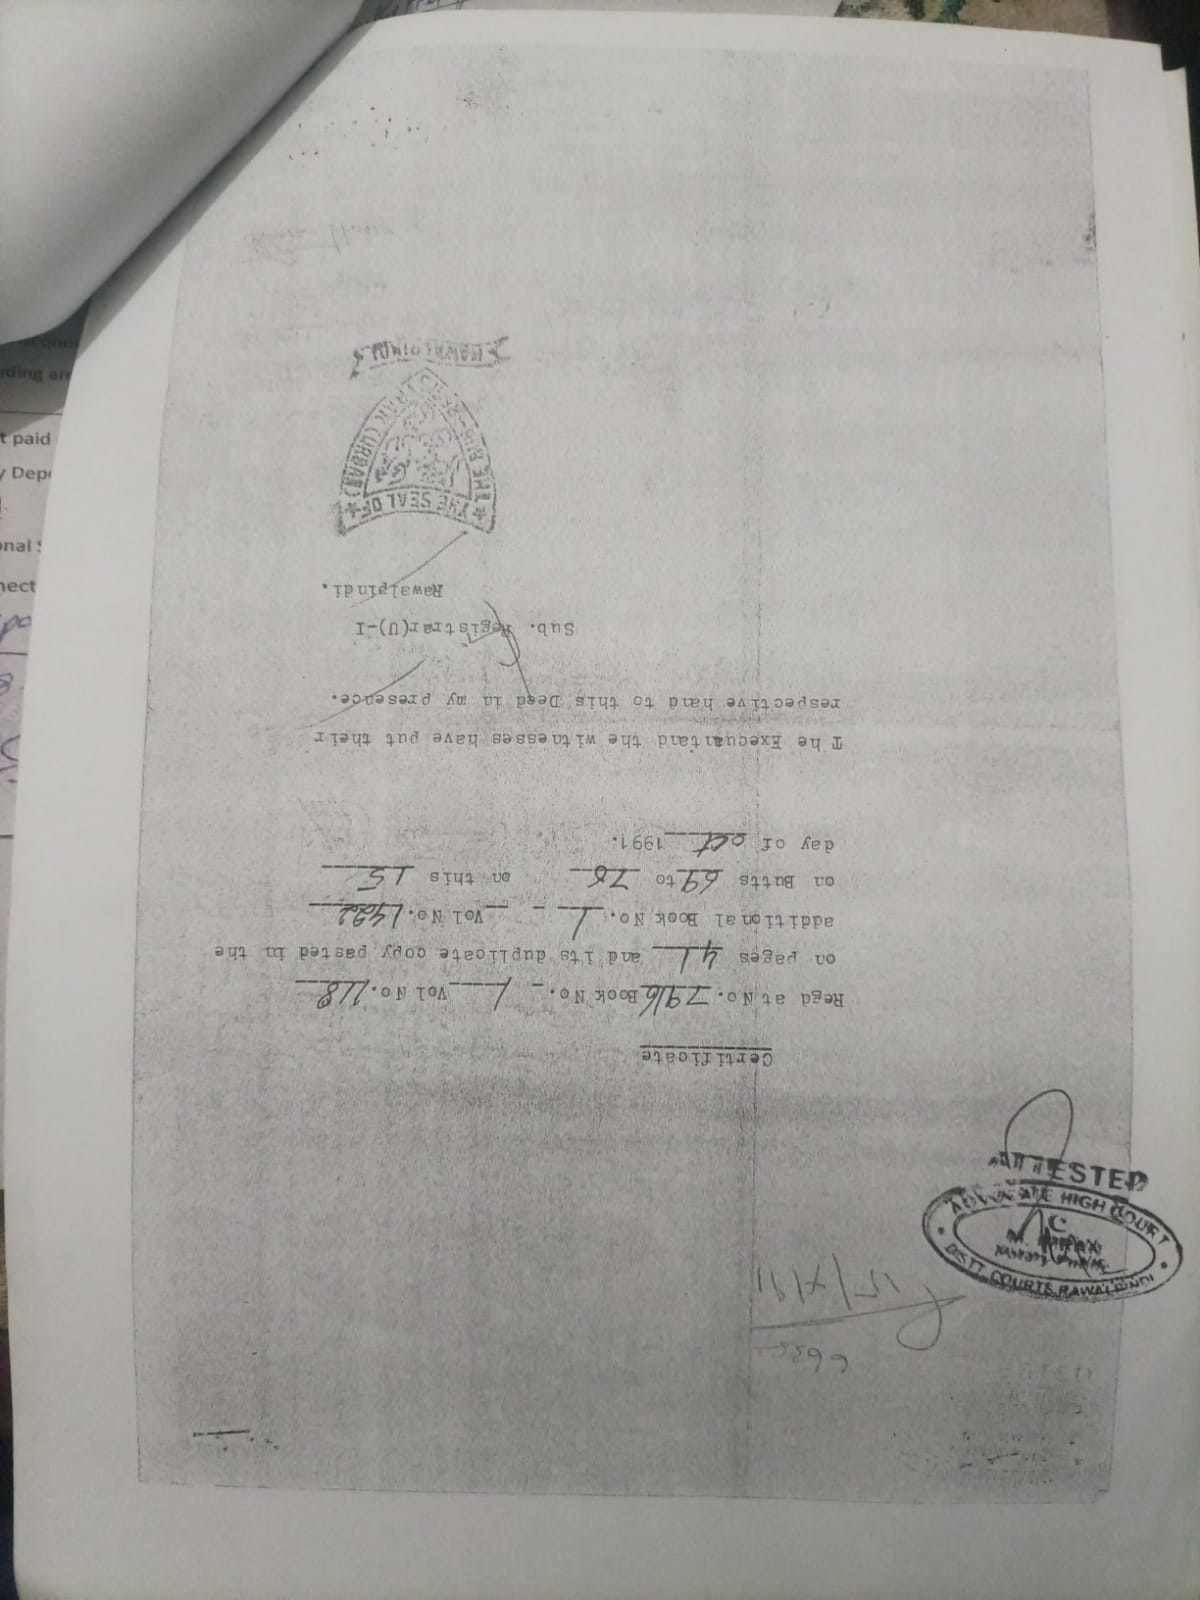 6635
15/X/91
Certificate
Regd at No. 7916 Book No. 1 Vol No. 118
on pages 41 and its duplicate copy pasted in the
additional Book No. 1 Vol No. 1422
on Butts 69 to 78 on this 15
day of oct 1991.
The Execuantand the witnesses have put their
respective hand to this Deed in my presence.
Sub. Registrar(U)-I
Rawalpindi.
THE SEAL OF
THE SUB-REGISTRAR (URBAN)
RAWALPINDI
ATTESTED
ADVOCATE HIGH COURT
DISTT. COURTS RAWALPINDI
ding am
t paid
y Depo
onal S
nect